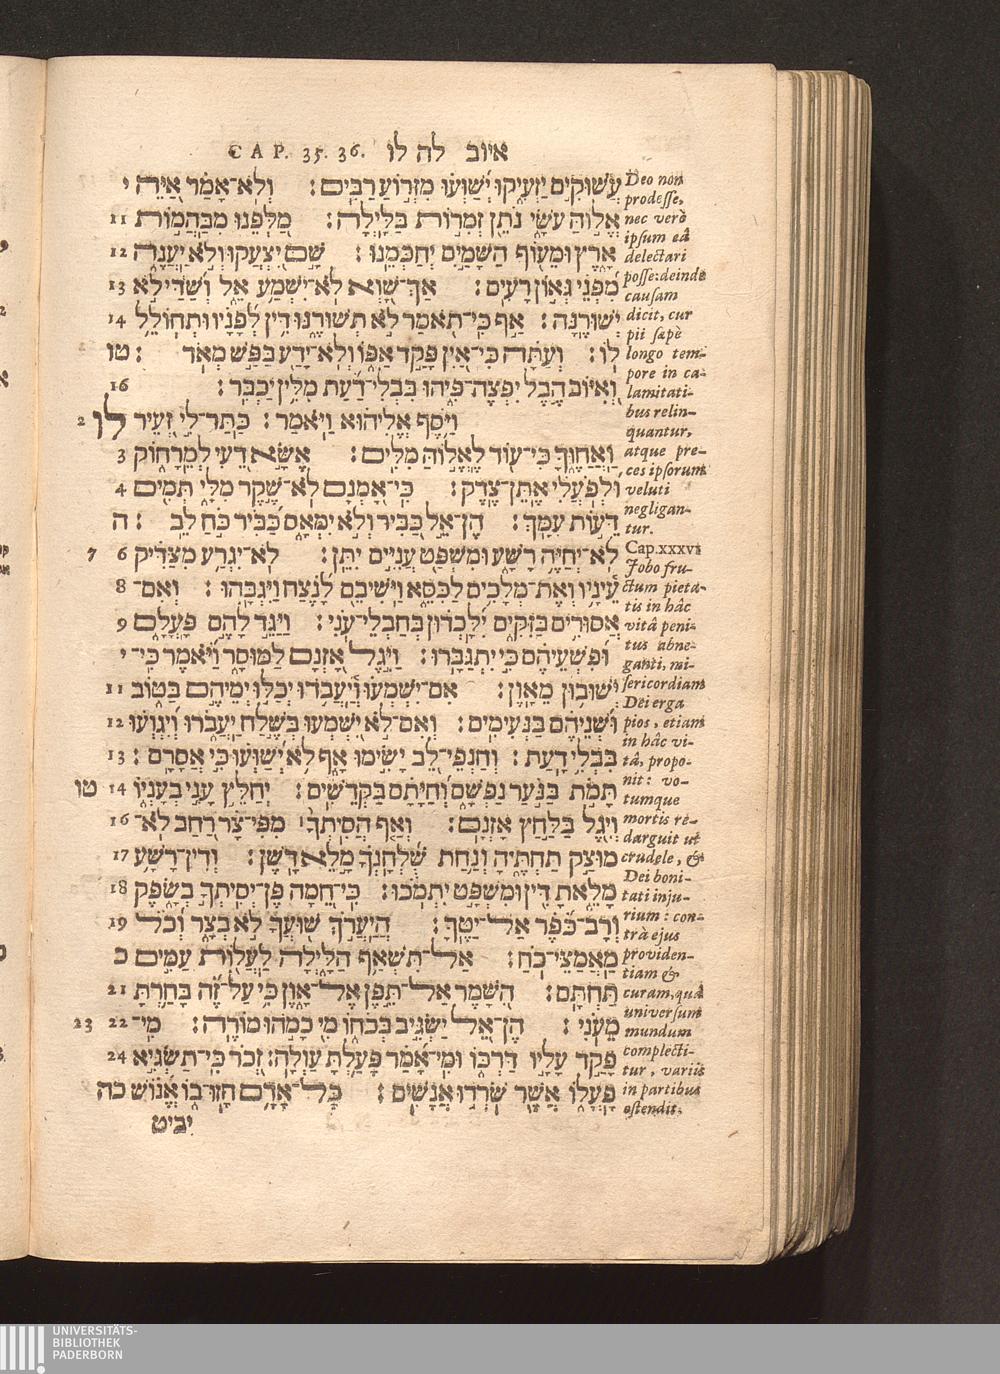 CAP. 35. 36. איוב לה לו
עֲשׁוּקִים יַזְעִיקוּ יְשַׁוְּעוּ מִזְּרוֹעַ רַבִּים׃ וְלֹא־אָמַר אַיֵּה י
אֱלוֹהַּ עֹשָׂי נֹתֵן זְמִרוֹת בַּלָּיְלָה׃ מַלְּפֵנוּ מִבַּהֲמוֹת 11
אָרֶץ וּמֵעוֹף הַשָּׁמַיִם יְחַכְּמֵנוּ׃ שָׁם יִצְעֲקוּ וְלֹא יַעֲנֶה 12
מִפְּנֵי גְּאוֹן רָעִים׃ אַךְ־שָׁוְא לֹא־יִשְׁמַע אֵל וְשַׁדַּי לֹא 13
יְשׁוּרֶנָּה׃ אַף כִּי־תֹאמַר לֹא תְשׁוּרֶנּוּ דִּין לְפָנָיו וּתְחוֹלֵל 14
לוֹ׃ וְעַתָּה כִּי־אַיִן פָּקַד אַפּוֹ וְלֹא־יָדַע בַּפַּשׁ מְאֹד׃ טו
וְאִיּוֹב הֶבֶל יִפְצֶה־פִּיהוּ בִּבְלִי־דַעַת מִלִּין יַכְבִּר׃ 16
וַיֹּסֶף אֱלִיהוּא וַיֹּאמַר׃ כַּתַּר־לִי זְעֵיר לו 2
וַאֲחַוֶּךָּ כִּי־עוֹד לֶאֱלוֹהַּ מִלִּים׃ אֶשָּׂא דֵעִי לְמֵרָחוֹק 3
וּלְפֹעֲלִי אֶתֵּן־צֶדֶק׃ כִּי־אָמְנָם לֹא־שֶׁקֶר מִלָּי תְּמִים 4
דֵּעוֹת עִמָּךְ׃ הֶן־אֵל כַּבִּיר וְלֹא יִמְאָס כַּבִּיר כֹּחַ לֵב׃ ה
לֹא־יְחַיֶּה רָשָׁע וּמִשְׁפַּט עֲנִיִּים יִתֵּן׃ לֹא־יִגְרַע מִצַּדִּיק 6 7
עֵינָיו וְאֶת־מְלָכִים לַכִּסֵּא וַיֹּשִׁיבֵם לָנֶצַח וַיִּגְבָּהוּ׃ וְאִם־ 8
אֲסוּרִים בַּזִּקִּים יִלָּכְדוּן בְּחַבְלֵי־עֹנִי׃ וַיַּגֵּד לָהֶם פָּעֳלָם 9
וּפִשְׁעֵיהֶם כִּי יִתְגַּבָּרוּ׃ וַיִּגֶל אָזְנָם לַמּוּסָר וַיֹּאמֶר כִּי־ י
יְשׁוּבוּן מֵאָוֶן׃ אִם־יִשְׁמְעוּ וְיַעֲבֹדוּ יְכַלּוּ יְמֵיהֶם בַּטּוֹב 11
וּשְׁנֵיהֶם בַּנְּעִימִים׃ וְאִם־לֹא יִשְׁמְעוּ בְּשֶׁלַח יַעֲבֹרוּ וְיִגְוְעוּ 12
בִּבְלִי דָעַת׃ וְחַנְפֵי־לֵב יָשִׂימוּ אָף לֹא יְשַׁוְּעוּ כִּי אֲסָרָם׃ 13
תָּמֹת בַּנֹּעַר נַפְשָׁם וְחַיָּתָם בַּקְּדֵשִׁים׃ יְחַלֵּץ עָנִי בְעָנְיוֹ 14 טו
וְיִגֶל בַּלַּחַץ אָזְנָם׃ וְאַף הֲסִיתְךָ מִפִּי־צָר רַחַב לֹא־ 16
מוּצָק תַּחְתֶּיהָ וְנַחַת שֻׁלְחָנְךָ מָלֵא דָשֶׁן׃ וְדִין־רָשָׁע 17
מָלֵאתָ דִּין וּמִשְׁפָּט יִתְמֹכוּ׃ כִּי־חֵמָה פֶּן־יְסִיתְךָ בְשָׂפֶק 18
וְרָב־כֹּפֶר אַל־יַטֶּךָּ׃ הֲיַעֲרֹךְ שׁוּעֲךָ לֹא בְצָר וְכֹל 19
מַאֲמַצֵּי־כֹחַ׃ אַל־תִּשְׁאַף הַלָּיְלָה לַעֲלוֹת עַמִּים כ
תַּחְתָּם׃ הִשָּׁמֶר אַל־תֵּפֶן אֶל־אָוֶן כִּי עַל־זֶה בָּחַרְתָּ 21
מֵעֹנִי׃ הֶן־אֵל יַשְׂגִּיב בְּכֹחוֹ מִי כָמֹהוּ מוֹרֶה׃ מִי־ 22 23
פָקַד עָלָיו דַּרְכּוֹ וּמִי־אָמַר פָּעַלְתָּ עַוְלָה׃ זְכֹר כִּי־תַשְׂגִּיא 24
פָעֳלוֹ אֲשֶׁר שֹׁרְרוּ אֲנָשִׁים׃ כָּל־אָדָם חָזוּ־בוֹ אֱנוֹשׁ כה
יביט
Deo non
prodesse,
nec verò
ipsum eâ
delectari
posse: deinde
causam
dicit, cur
pii sæpè
longo tem-
pore in ca-
lamitati-
bus relin-
quantur,
atque pre-
ces ipsorum
veluti
negligan-
tur.
Cap. xxxvi
Jobo fru-
ctum pieta-
tis in hâc
vitâ peni-
tus abne-
ganti, mi-
sericordiam
Dei erga
pios, etiam
in hâc vi-
tâ, propo-
nit: vo-
tumque
mortis re-
darguit ut
crudele, &
Dei boni-
tati inju-
rium: con-
trà ejus
providen-
tiam &
curam, quâ
universum
mundum
complecti-
tur, variis
in partibus
ostendit.
UNIVERSITÄTS-
BIBLIOTHEK
PADERBORN